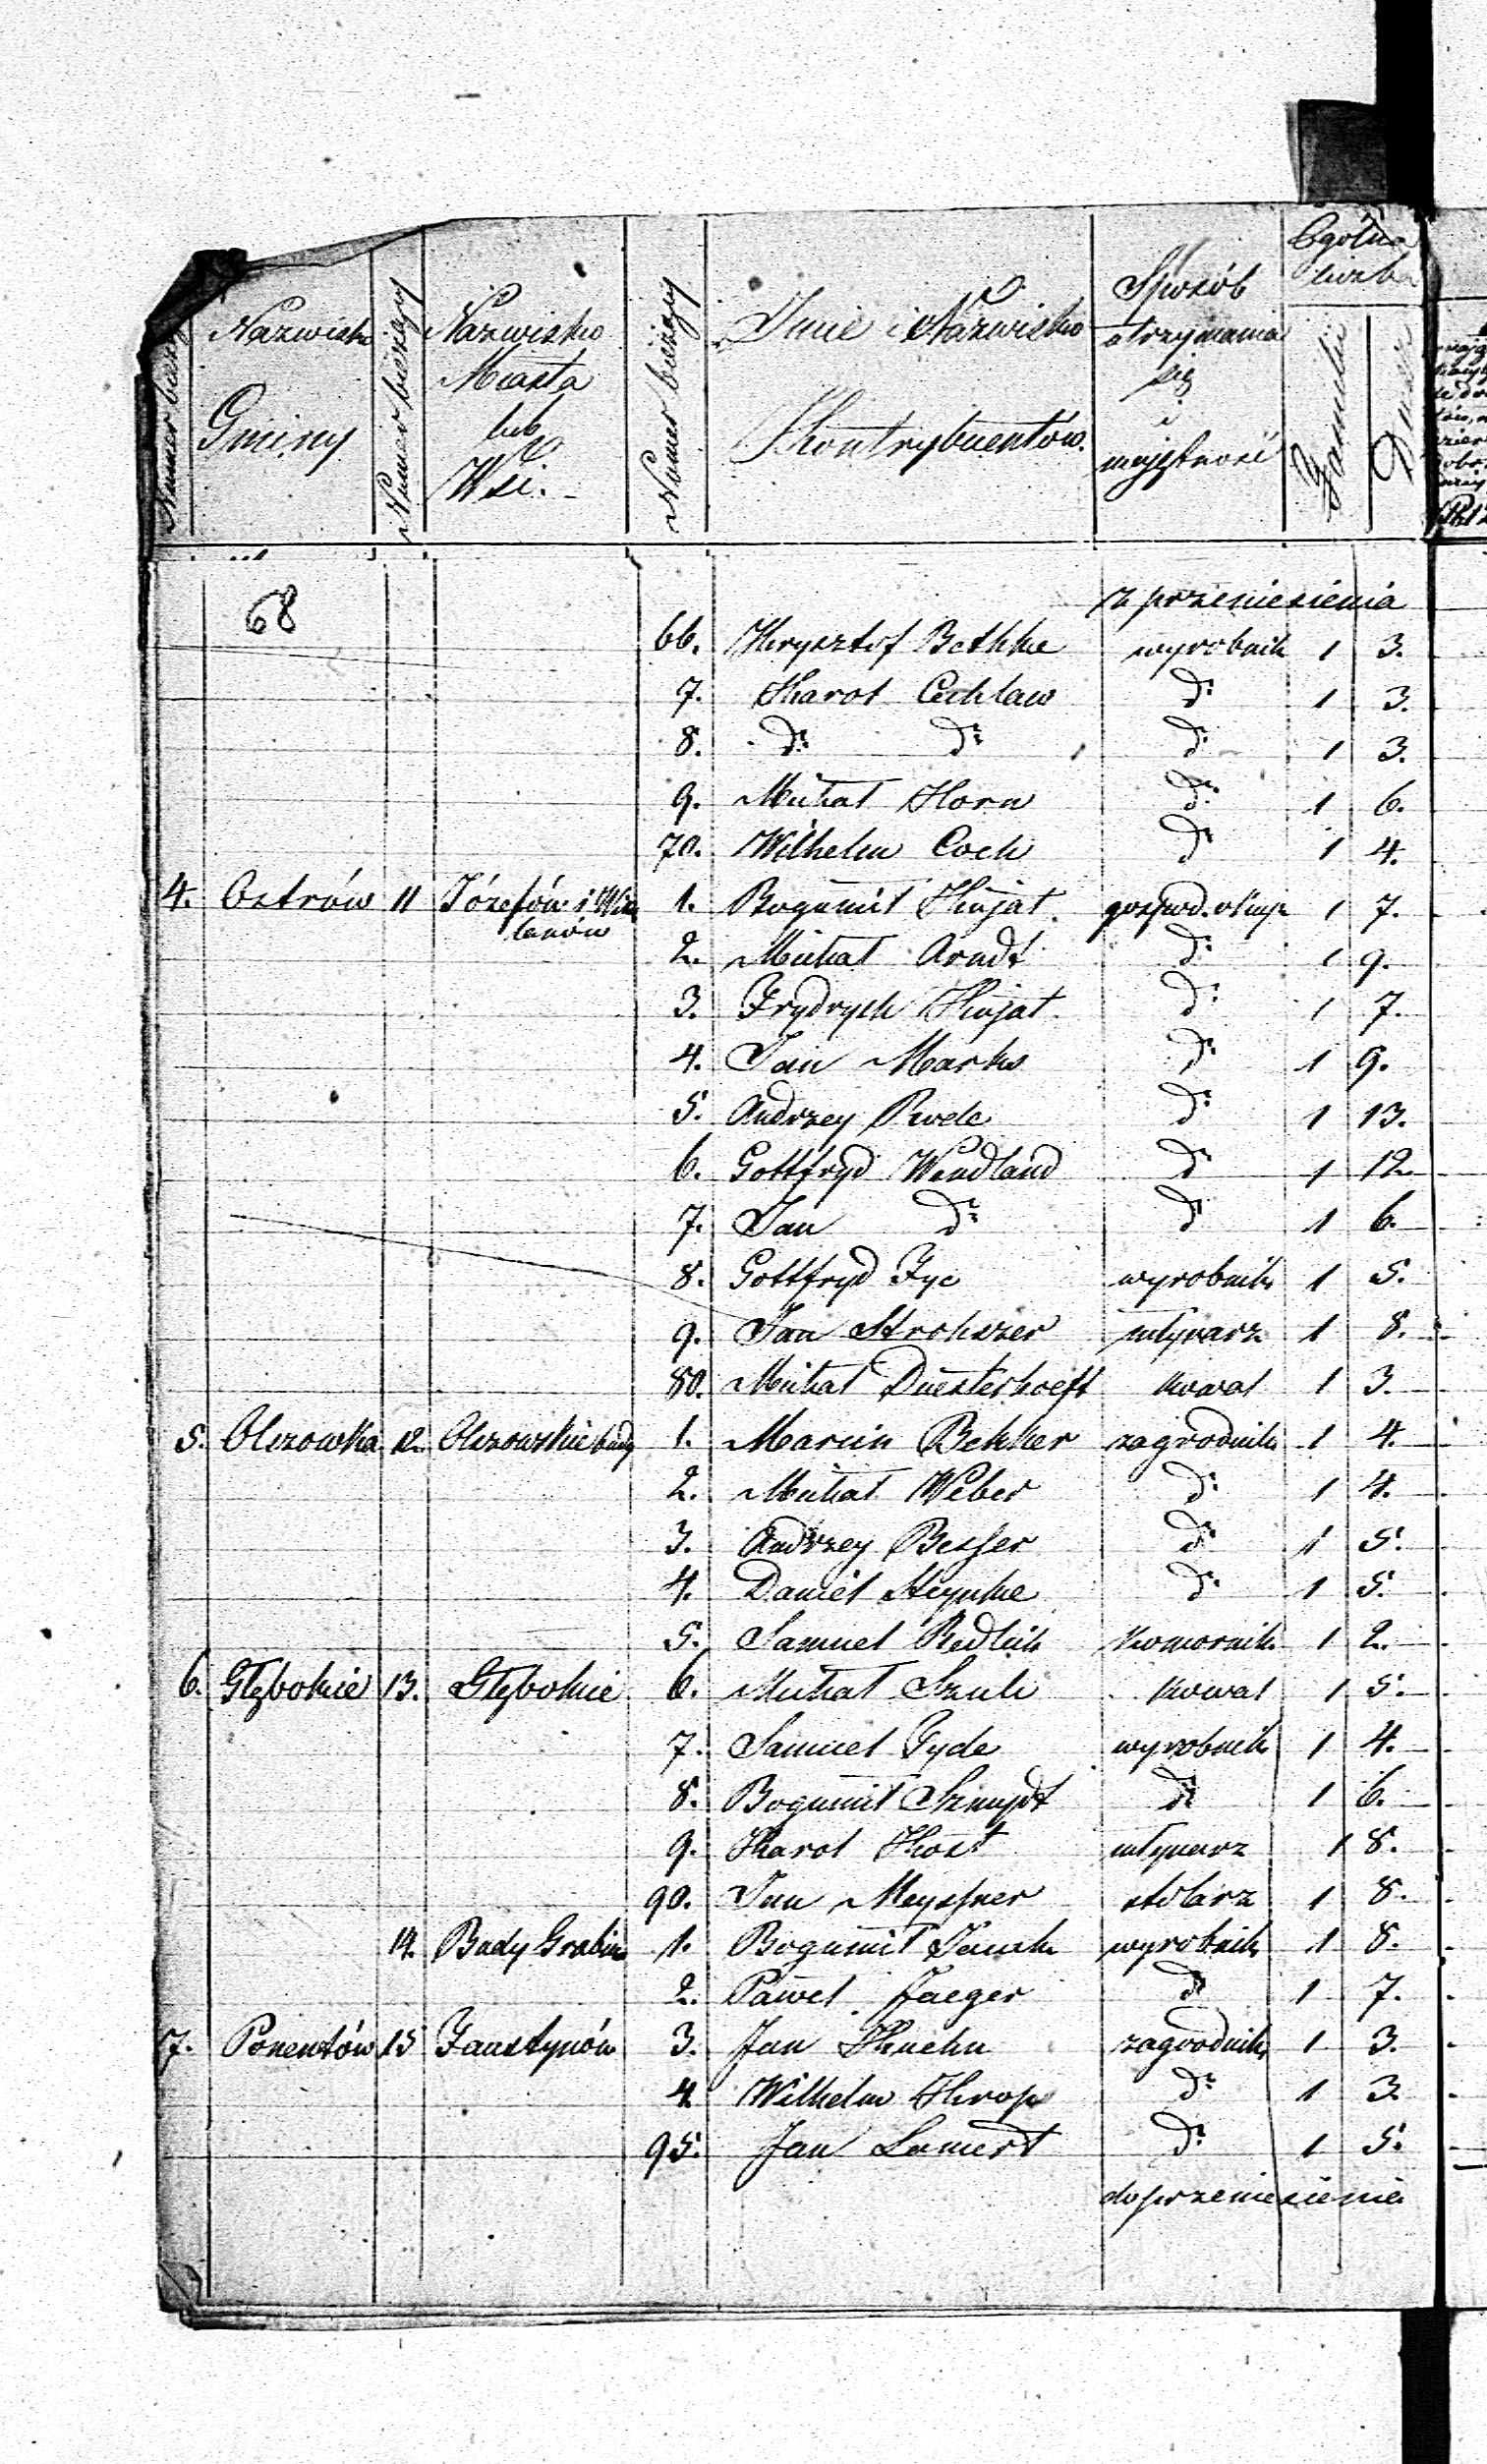 Numer bieżący
Nazwisko Gminy
Numer bieżący
Nazwisko Miasta lub Wsi.
Numer bieżący
Imie i Nazwisko Kontrybuentów.
Sposób utrzymania się i majętność
Ogólna liczba
Familii
Dusz
68
z przeniesienia
66. Krysztof Bethke wyrobnik 1 3.
7. Karol Cechlaw d° 1 3.
8. d° d° d° 1 3.
9. Michał Horn d° 1 6.
70. Wilhelm Coch d° 1 4.
4. Ostrów 11 Józefów i Wi
lanów
1. Bogumił Kujat gospod. okup 1 7.
2. Michał Arndt d° 1 9.
3. Frydrych Kujat d° 1 7.
4. Jan Marks d° 1 9.
5. Andrzey Rode d° 1 13.
6. Gottfryd Wendland d° 1 12
7. Jan d° d° 1 6.
8. Gottfryd Fyc wyrobnik 1 5.
9. Jan Strohszer młynarz 1 8.
80. Michał Duesterhoeft kowal 1 3.
5. Olszowka 12. Olszowskie budy 1. Marcin Bekker zagrodnik 1 4.
2. Michał Weber d° 1 4.
3. Andrzey Besser d° 1 5.
4. Daniel Heynke d° 1 5.
5. Samuel Redlich komornik 1 2.
6. Głębokie 13. Głębokie 6. Michał Szulc kowal 1 5.
7. Samuel Tyde wyrobnik 1 4.
8. Bogumił Szmydt d° 1 6.
9. Karol Kost młynarz 1 8.
90. Jan Meysner stolarz 1 8.
14. Budy Grabin 1. Bogumił wyrobnik 1 8.
2. Paweł Jaeger d° 1 7.
7. Ponentów 15 Faustynów 3. Jan Kuehn zagrodnik 1 3.
4 Wilhelm Krop d° 1 3.
95. Jan Lemert d° 1 5.
do przeniesienia